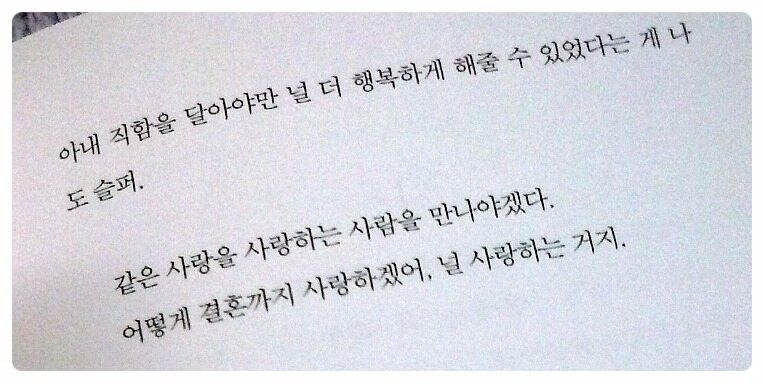 아내 직함을 달아야만 널 더 행복하게 해줄 수 있었다는 게 나
도 슬퍼.
같은 사랑을 사랑하는 사람을 만나야겠다.
어떻게 결혼까지 사랑하겠어, 널 사랑하는 거지.